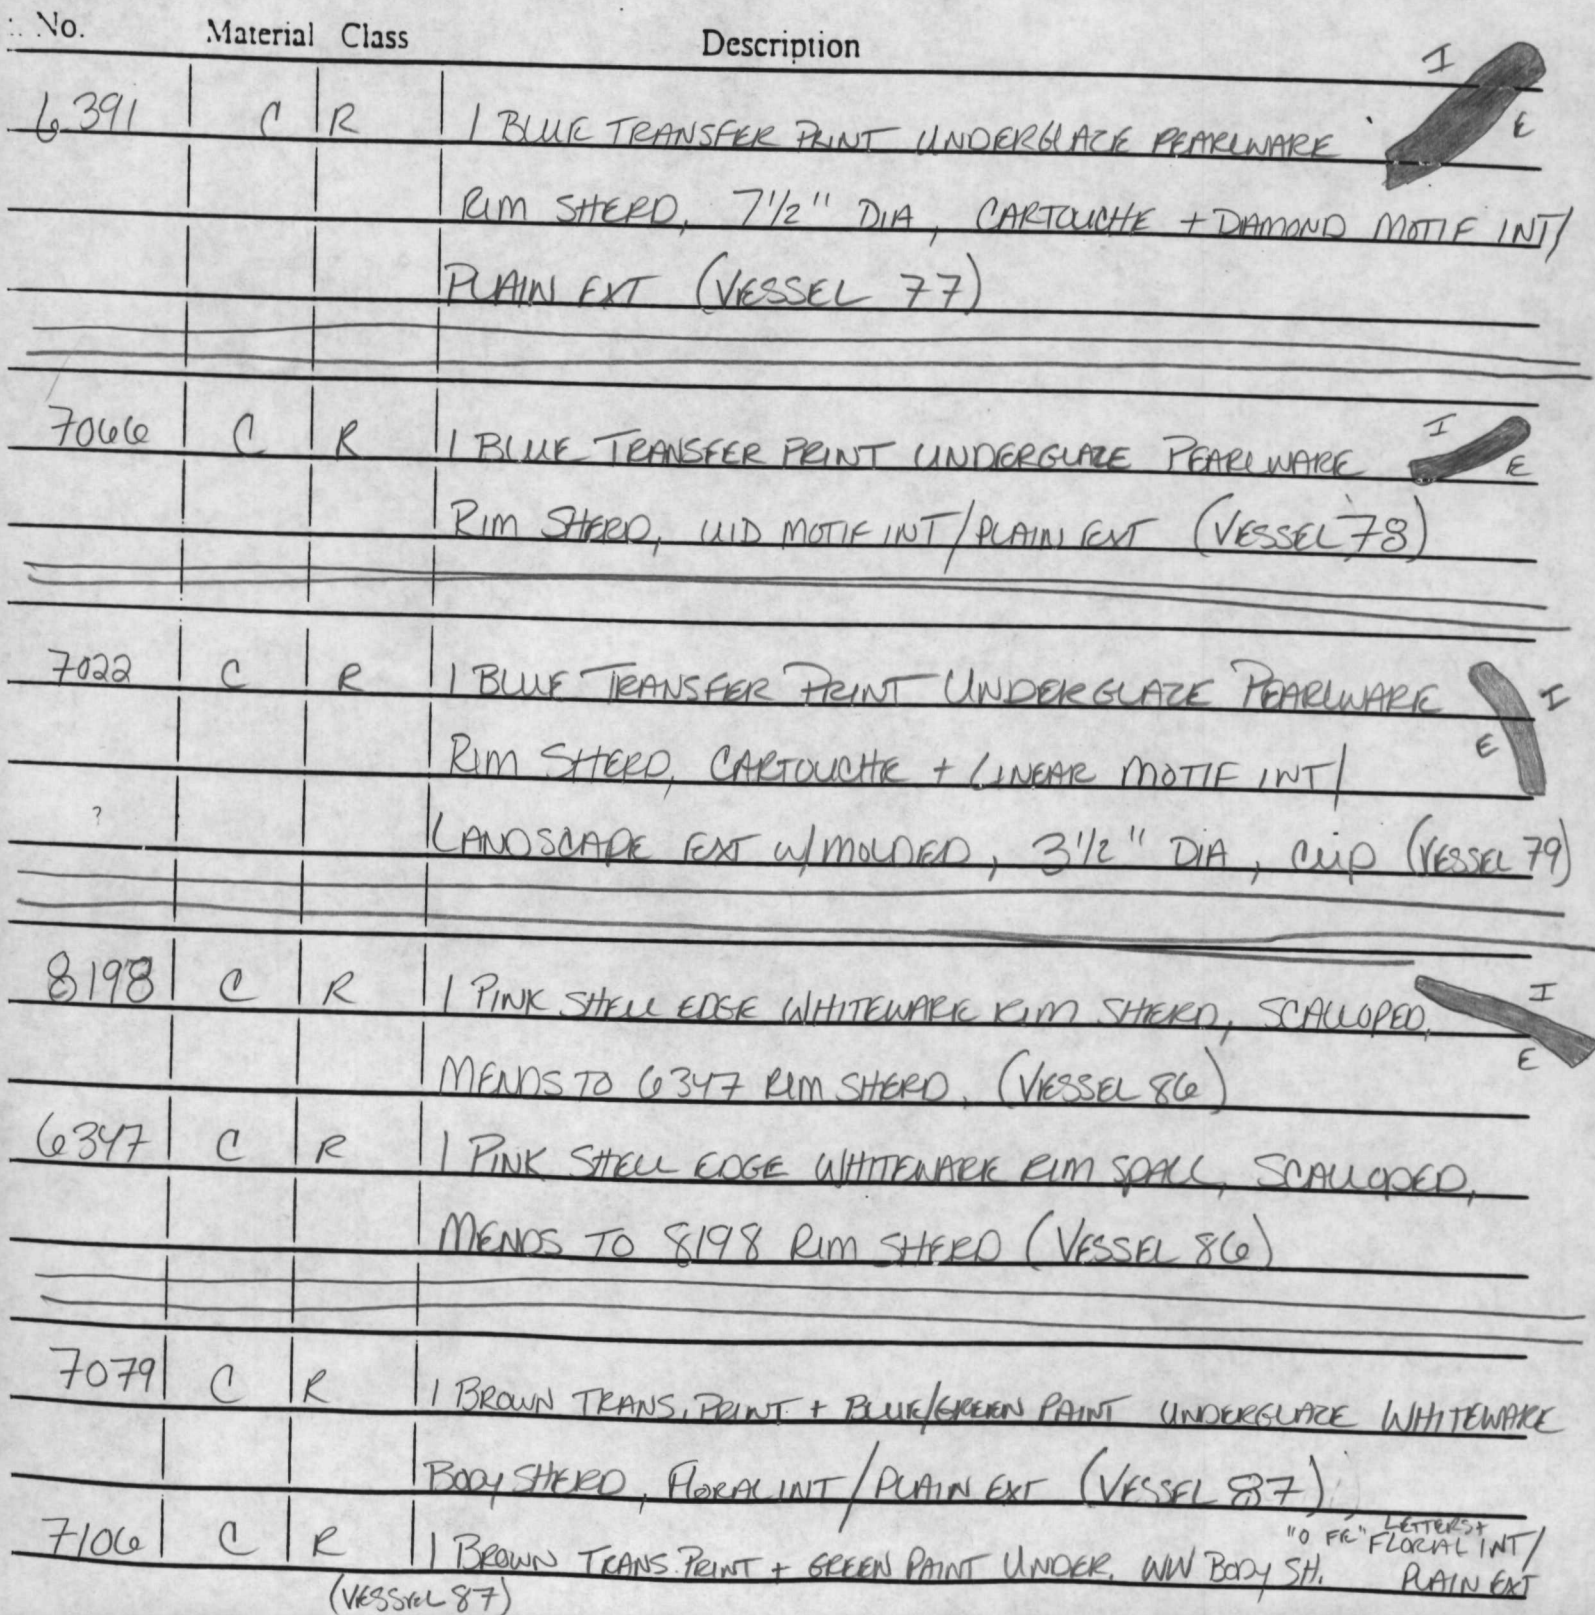 No. Material Class Description
6391 C R 1 BLUE TRANSFER PRINT UNDERGLAZE PEARLWARE I E
RIM SHERD, 7 1/2" DIA, CARTOUCHE + DAMOND MOTIF INT/
PLAIN EXT (VESSEL 77)
7066 C R 1 BLUE TRANSFER PRINT UNDERGLAZE PEARLWARE I E
RIM SHERD, UID MOTIF INT/PLAIN EXT (VESSEL 78)
7022 C R 1 BLUE TRANSFER PRINT UNDERGLAZE PEARLWARE I E
RIM SHERD, CARTOUCHE + LINEAR MOTIF INT/
? LANDSCAPE EXT W/MOLDED, 3 1/2" DIA, CUP (VESSEL 79)
8198 C R 1 PINK SHELL EDGE WHITEWARE RIM SHERD, SCALLOPED, I E
MENDS TO 6347 RIM SHERD. (VESSEL 86)
6347 C R 1 PINK SHELL EDGE WHITEWARE RIM SPALL, SCALLOPED,
MENDS TO 8198 RIM SHERD (VESSEL 86)
7079 C R 1 BROWN TRANS. PRINT + BLUE/GREEN PAINT UNDERGLAZE WHITEWARE
BODY SHERD, FLORAL INT/PLAIN EXT (VESSEL 87)
7106 C R 1 BROWN TRANS. PRINT + GREEN PAINT UNDER. WW BODY SH. "O FE" LETTERS + FLORAL INT/
PLAIN EXT
(VESSEL 87)